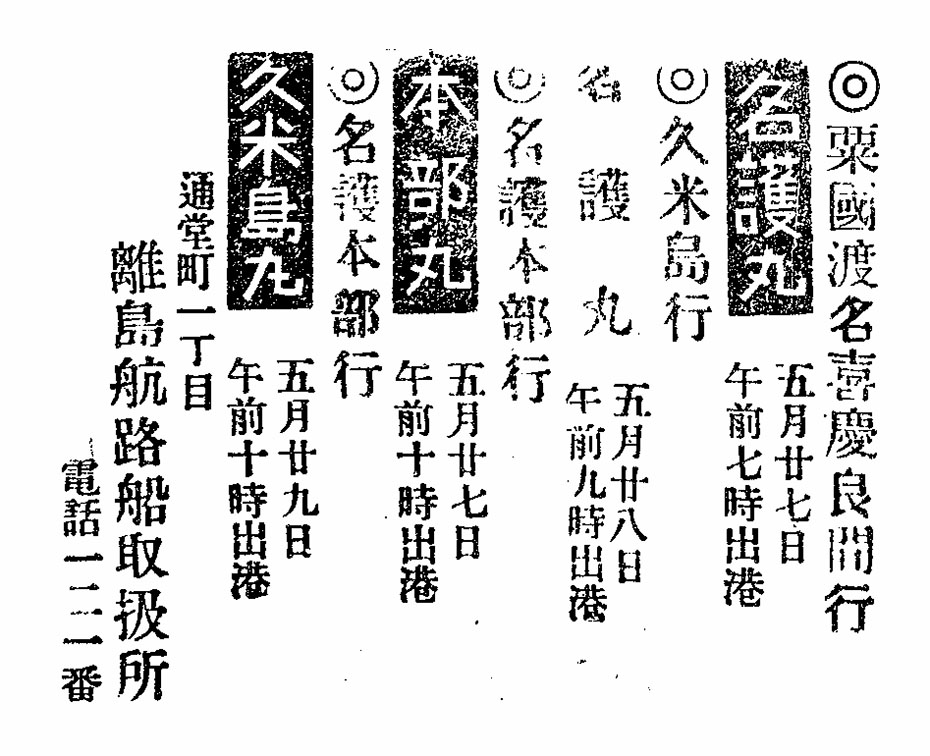 ◎粟國渡名喜慶良間行
名護丸
五月廿七日
午前七時出港
◎久米島行
名護丸
五月廿八日
午前九時出港
◎名護本部行
本部丸
五月廿七日
午前十時出港
◎名護本部行
久米島丸
五月廿九日
午前十時出港
通堂町一丁目
離島航路船取扱所
電話 番